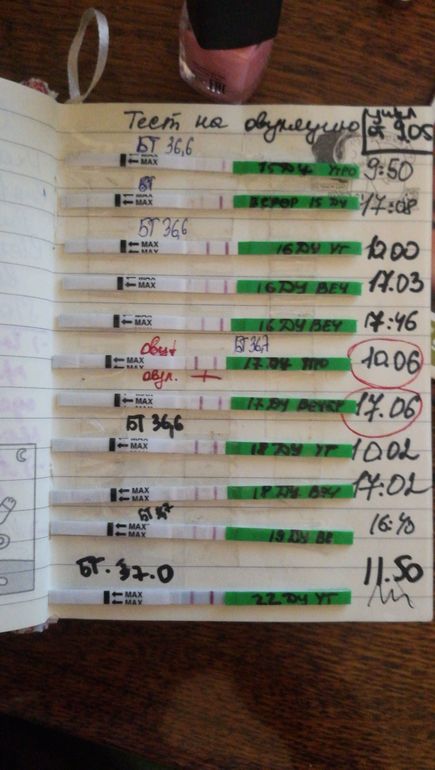 Тест на овуляцию цикл от 9.05
БТ 36,6
MAX MAX 15 ДЦ УТРО 9:50
БТ
MAX MAX ВЕЧЕР 15 ДЦ 17:08
БТ 36,6
MAX MAX 16 ДЦ УТ 12.00
MAX MAX 16 ДЦ ВЕЧ 17.03
MAX MAX 16 ДЦ ВЕЧ 17:46
овул БТ 36,7
MAX MAX 17 ДЦ УТРО 10.06
овул. +
MAX MAX 17 ДЦ ВЕЧЕР 17.06
БТ 36,6
MAX MAX 18 ДЦ УТ 10.02
MAX MAX 18 ДЦ ВЕЧ 17:02
БТ
MAX MAX 19 ДЦ ВЕ 16:40
БТ. 37.0 11.50
MAX MAX 22 ДЦ УТ